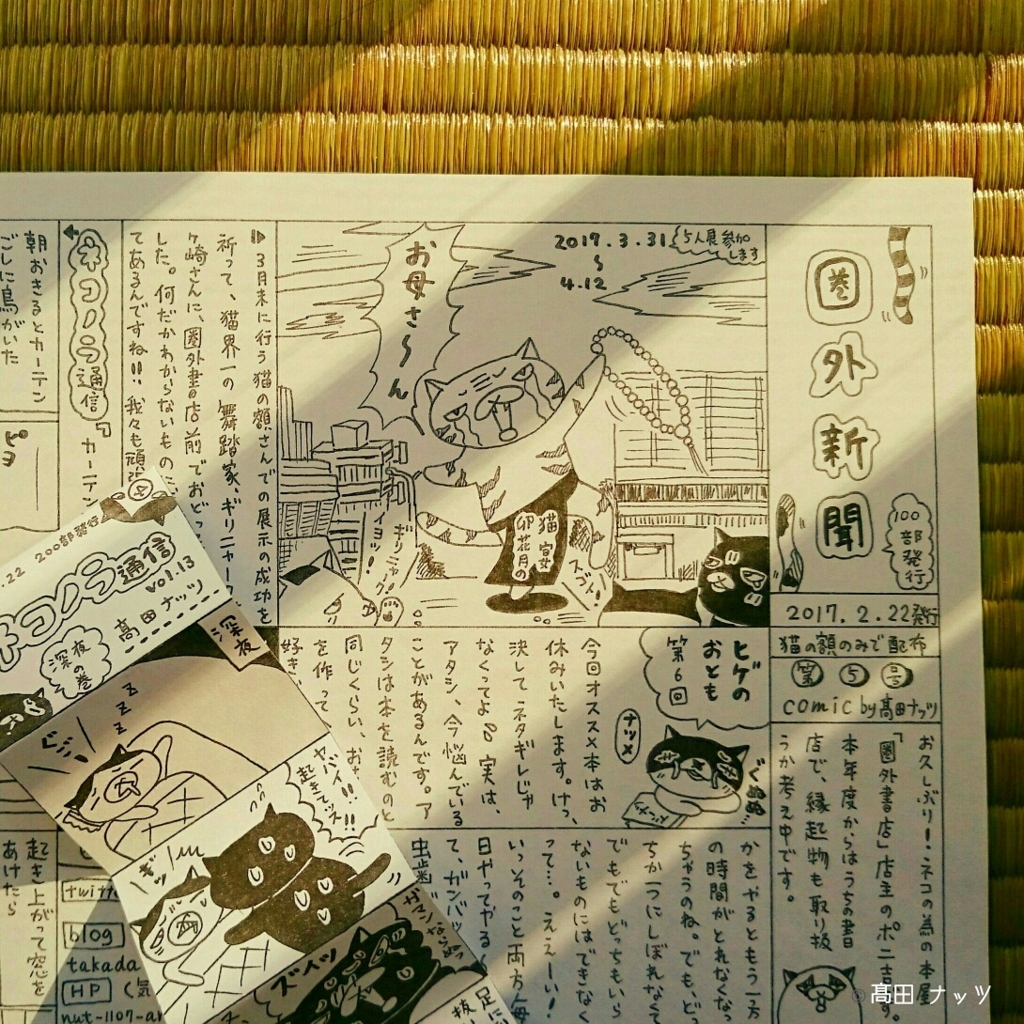 圏外新聞
100部発行
2017.2.22発行
猫の額のみで配布
第5号
comic by 高田ナッツ
お久しぶり！ネコの為の本屋
「圏外書店」店主のポニ吉です。
本年度からはうちの書
店で、縁起物も取り扱
うか考え中です。
5人展参加
します
2017.3.31
〜
4.12
お母さ〜ん
猫寅
卯花月の
スゴイ
ギリニャーク!!
イヨッ!
3月末に行う猫の額さんでの展示の成功を
祈って、猫界一の舞踏家、ギリニャーク
ヶ崎さんに、圏外書店前でおどっ
した。何だかわからないものだ
てあるんですね!!我々も頑張
ネコノラ通信
『カーテン
朝おきるとカーテン
ごしに鳥がいた
ピヨ
ヒゲの
おとも
第6回
ナツメ
ぐぬぬ…
今回オススメ本はお
休みいたします。けっ
決してネタギレじゃ
なくってよ!! 実は、
アタシ、今悩んでいる
ことがあるんです。ア
タシは本を読むのと
同じくらい、お
を作って、
好き
かをやるともう一方
の時間がとれなくなっ
ちゃうのね。でも、どっ
ちか一つにしぼれなく
でもでもどっちもいら
ないものにはできなく
って…。ええーい！
いっそのこと両方毎
日やってやる
て、ガンバッ
虫歯
起き上がって窓を
あけたら
twitt
blog
takada
HP
く気
nut-1107-ar
.22 200部発行
ネコノラ通信
vol.13
高田ナッツ
深夜の巻
深夜
zzzz
ぐごご
ヤバイッ!!
起きてッス!!
ギッ
ガマンならぬ
ズイッ
足に
抜い
©高田ナッツ